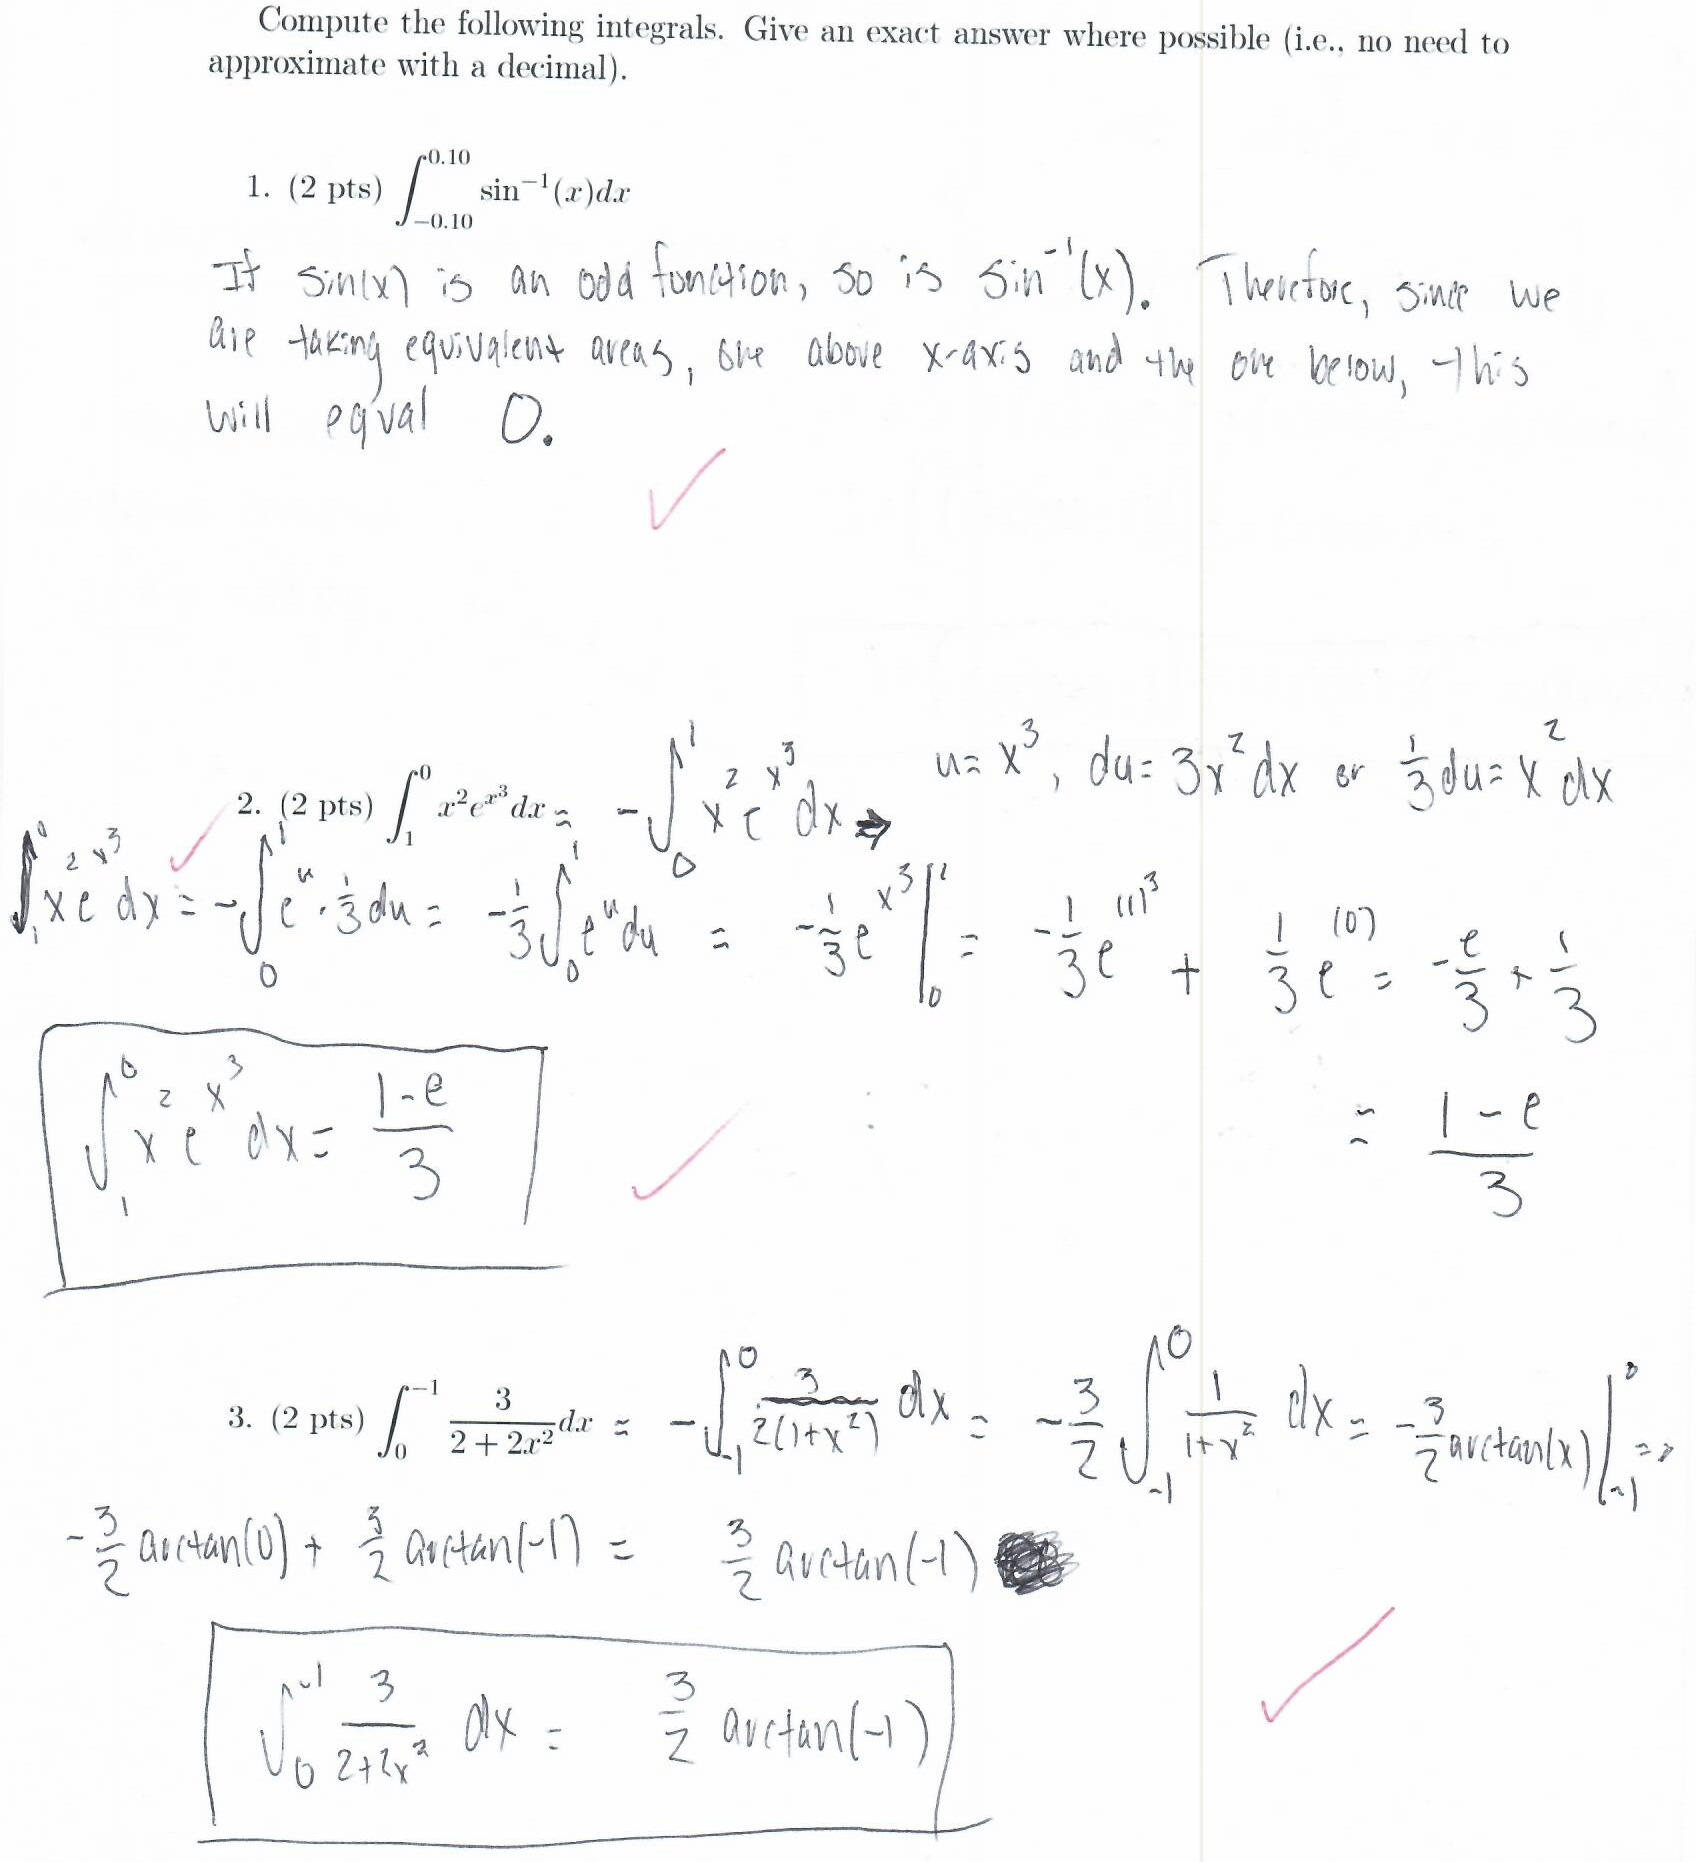 Compute the following integrals. Give an exact answer where possible (i.e., no need to
approximate with a decimal).
1. (2 pts) ∫_{-0.10}^{0.10} sin⁻¹(x)dx
If sin(x) is an odd function, so is sin⁻¹(x). Therefore, since we
are taking equivalent areas, one above x-axis and the one below, this
will equal 0.
2. (2 pts) ∫_1^0 x²e^{x³}dx = -∫_0^1 x²e^{x³}dx → u = x³, du = 3x²dx or 1/3 du = x²dx
∫_1^0 x²e^{x³}dx = -∫_0^1 e^u · 1/3 du = -1/3 ∫_0^1 e^u du = -1/3 e^{x³} |_0^1 = -1/3 e^{(1)³} + 1/3 e^{(0)} = -e/3 + 1/3
= (1-e)/3
∫_1^0 x²e^{x³}dx = (1-e)/3
3. (2 pts) ∫_0^{-1} 3/(2+2x²) dx = -∫_{-1}^0 3/(2(1+x²)) dx = -3/2 ∫_{-1}^0 1/(1+x²) dx = -3/2 arctan(x) |_{-1}^0 =>
-3/2 arctan(0) + 3/2 arctan(-1) = 3/2 arctan(-1)
∫_0^{-1} 3/(2+2x²) dx = 3/2 arctan(-1)